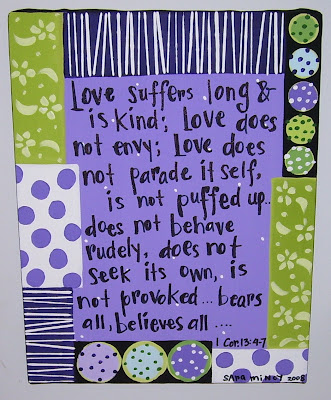 Love suffers long &
is kind; Love does
not envy; Love does
not parade it self,
is not puffed up..
does not behave
rudely, does not
seek its own, is
not provoked... bears
all, believes all ....
1 Cor. 13:4-7
SARA MINCY 2008